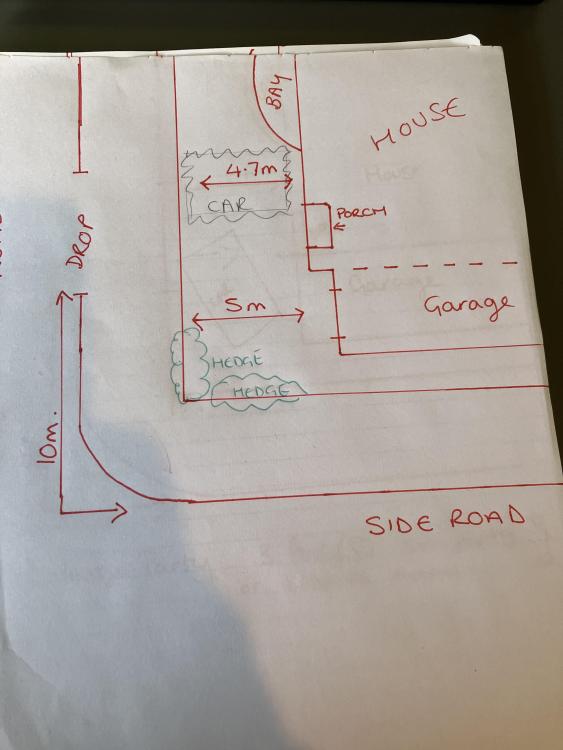 BAY
HOUSE
4.7m
CAR
PORCH
DROP
5m
Garage
HEDGE
HEDGE
10m.
SIDE ROAD